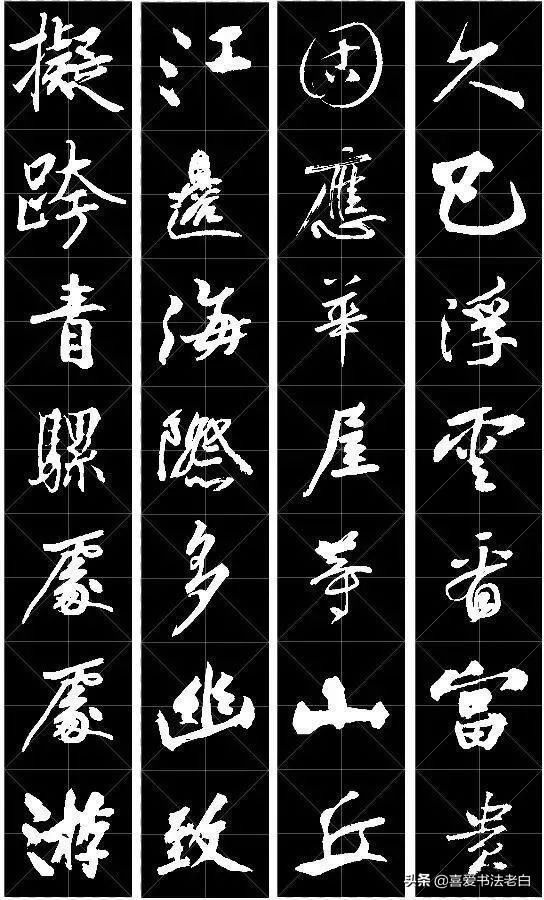 久已浮雲看富貴
固應華屋等山丘
江邊海際多幽致
擬跨青騾處處游
头条 @喜爱书法老白